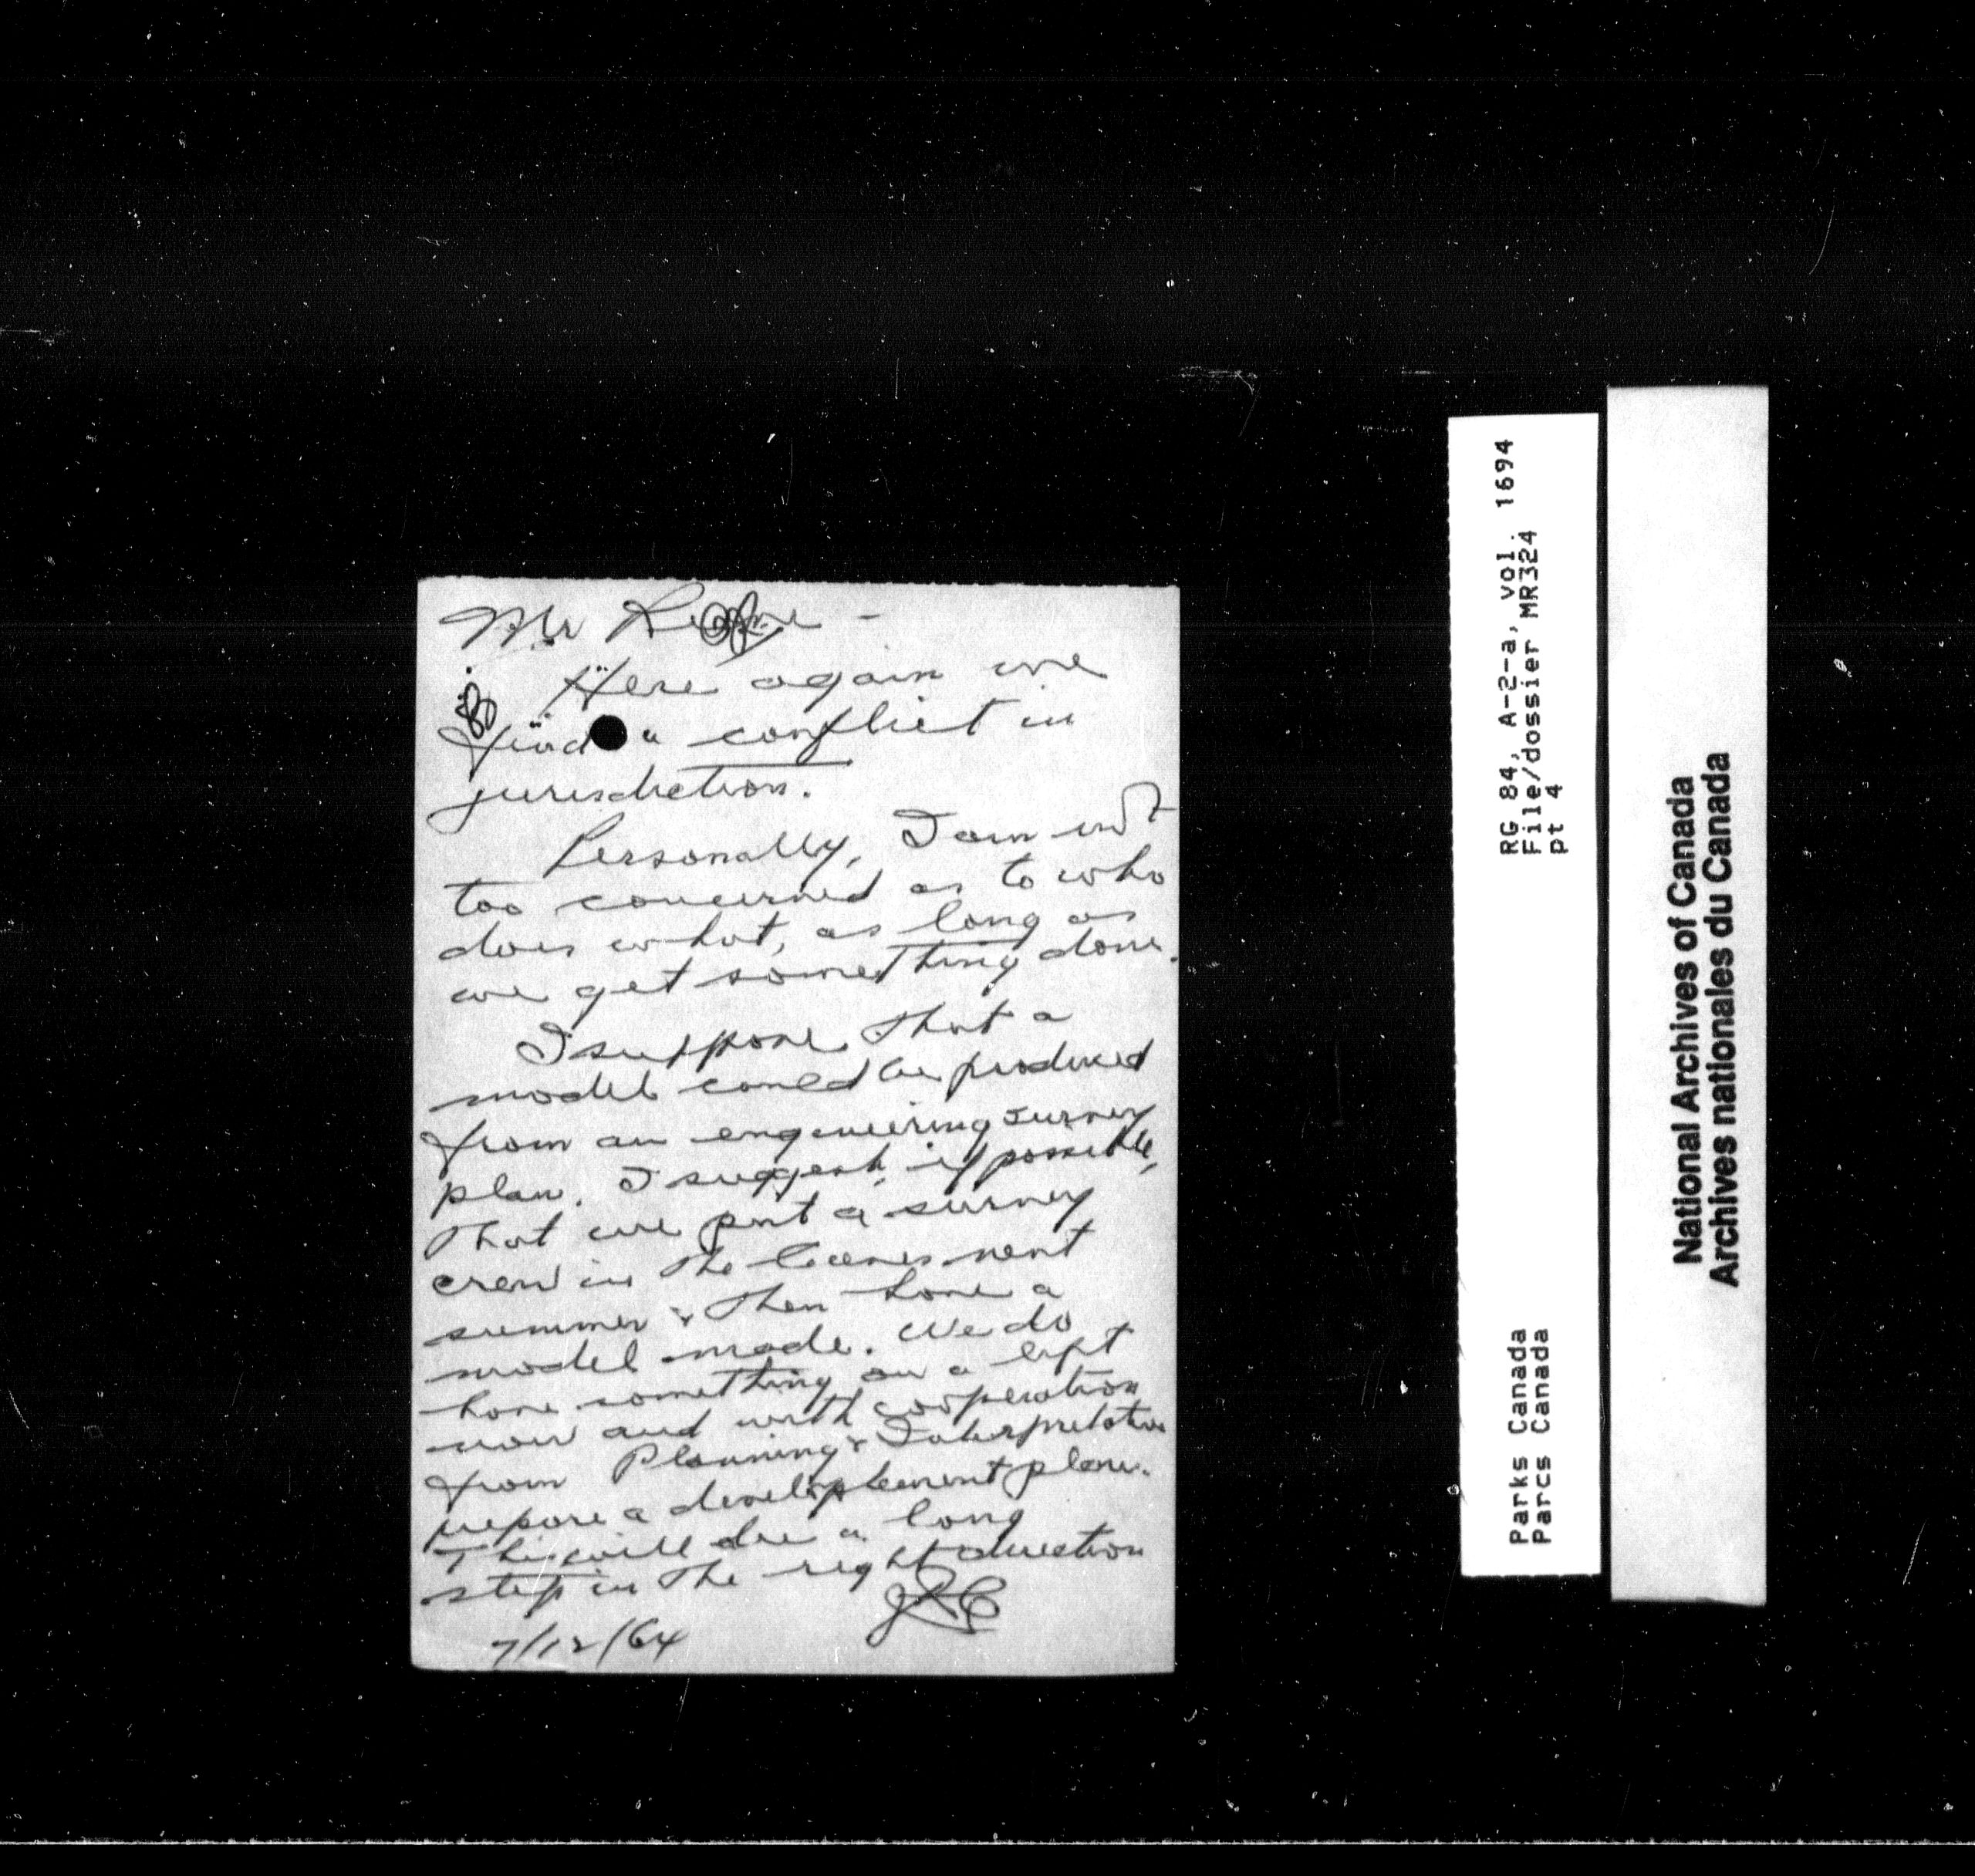 Mr
Here again we
find a conflict in
jurisdiction.
Personally, I am not
too concerned as to who
does what, as long as
we get something done.
I suppose that a
model could be produced
from an engineering survey
plan. I suggest, if possible,
that we put a survey
crew in the caves next
summer & then have a
model made. We do
have something on a lift
now and with cooperation
from Planning & Interpretation
prepare a development plan.
This will be a long
step in the right direction
JRC
7/12/64
RG 84, A-2-a, vol. 1694
File/dossier MR324
pt 4
Parks Canada
Parcs Canada
National Archives of Canada
Archives nationales du Canada